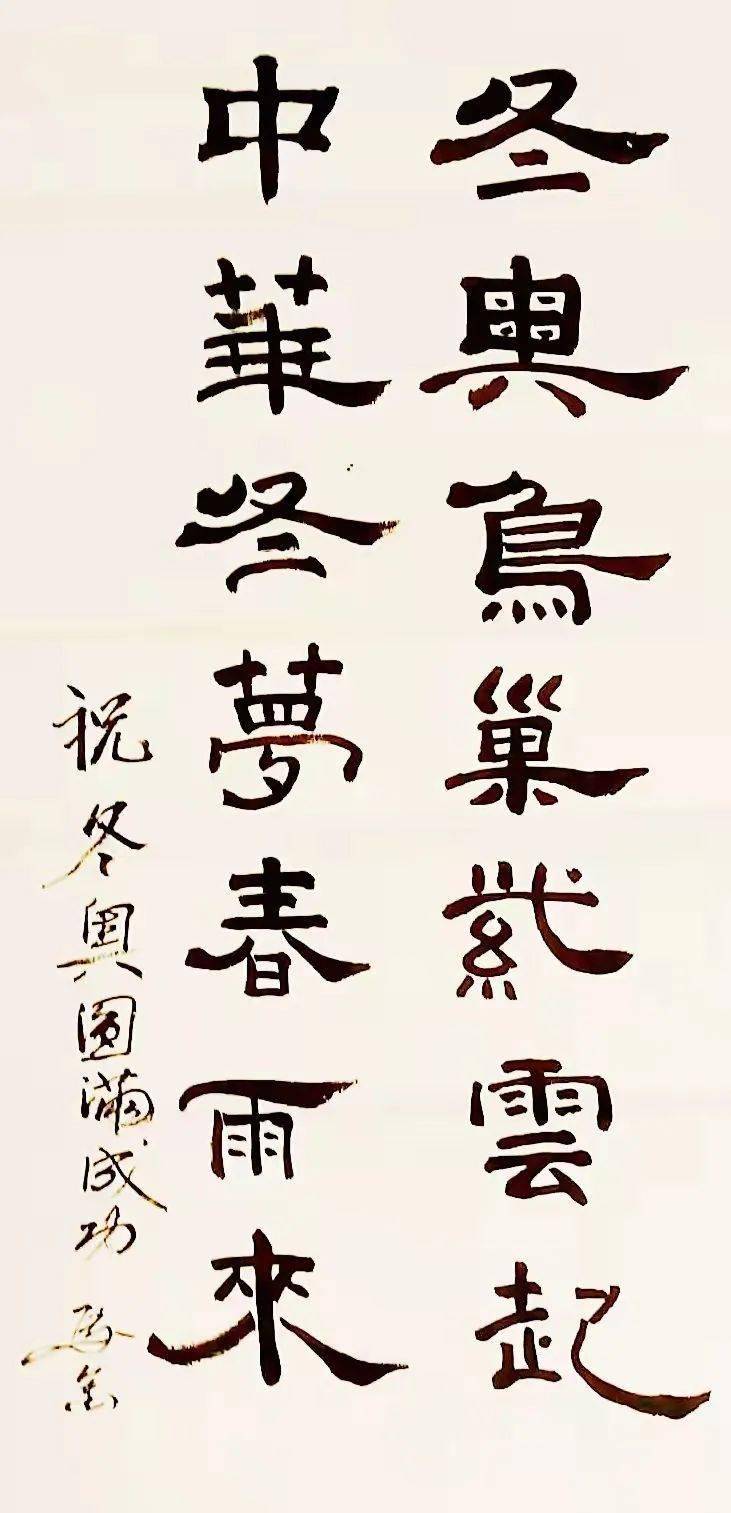 冬奥鳥巢紫雲起
中華冬夢春雨來
祝冬奥圆滿成功